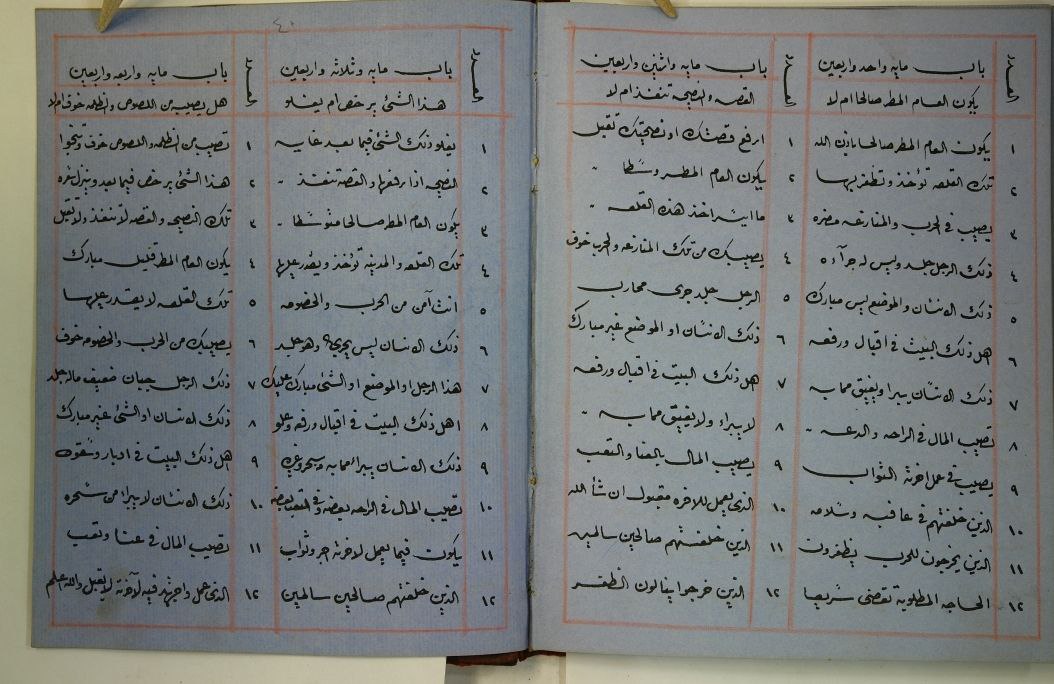 باب مايه واحد واربعين
العدد
يكون العام المطر صالحا ام لا
١ يكون العام المطر صالحا باذن الله
٢ تلك القلعه تؤخذ وتظفر بها
٣ يصيب في الحرب والمنازعه مضره
٤ ذلك الرجل جلد وليس له جرآءه
٥ ذلك الانسان والموضع ليس مبارك
٦ اهل ذلك البيت في اقبال ورفعه
٧ ذلك الانسان يبرا ويفيق مما به
٨ تصيب المال في الراحه والدعه
٩ يصيب في عمل اخرته الثواب
١٠ الذين خلفتهم في عافيه وسلامه
١١ الذين يخرجون للحرب يظفرون
١٢ الحاجه المطلوبه تقضى سريعا
باب مايه واثنين واربعين
العدد
القصه والنصيحه تنفذ ام لا
١ ارفع قصتك او نصيحتك تقبل
٢ يكون العام المطر وسطا
٣ ما ايسر اخذ هذه القلعه
٤ يصيبك من تلك المنازعه والحرب خوف
٥ الرجل جلد جرى محارب
٦ ذلك الانسان او الموضع غير مبارك
٧ اهل ذلك البيت في اقبال ورفعه
٨ لا يبراء ولا يفيق مما به
٩ يصيب المال بالعنا والتعب
١٠ الذى يعمل للاخره مقبول ان شا الله
١١ الذين خلفتهم صالحين سالمين
١٢ الذين خرجوا ينالون الظفر
٤٠
باب مايه وثلاثه واربعين
العدد
هذا الشئ يرخص ام يغلو
١ يغلو ذلك الشئ فيما بعد غايه
٢ النصيحه اذا رفعتها والقصه تنفذ
٣ يكون العام المطر صالحا متوسطا
٤ تلك القلعه والمدينه تؤخذ ويقدر عليها
٥ انت آمن من الحرب والخصومه
٦ ذلك الانسان ليس بجرئ وهو جليد
٧ هذا الرجل او الموضع او الشئ مبارك عليك
٨ اهل ذلك البيت في اقبال ورفعه وعلو
٩ ذلك الانسان يبراء مما به
١٠ تصيب المال في الراحه بعضه وفي التعب بعضه
١١ يكون فيما يعمل لاخرته اجر وثواب
١٢ الذين خلفتهم صالحين سالمين
باب مايه واربعه واربعين
العدد
هل يصيب من اللصوص والظلمه خوف ام لا
١ تصيب من الظلمه واللصوص خوف وتنجوا
٢ هذا الشئ يرخص فيما بعد وينزل سعره
٣ تلك النصيحه والقصه لا تنفذ ولا تقبل
٤ يكون العام المطر قليل مبارك
٥ تلك القلعه لا يقدر عليها
٦ يصيبك من الحرب والخصومه خوف
٧ ذلك الرجل جبان ضعيف ماله جلد
٨ ذلك الانسان او الشئ غير مبارك
٩ اهل ذلك البيت في ادبار وسقوط
١٠ ذلك الانسان لا يبرا من سحره
١١ تصيب المال في عنا وتعب
١٢ الذى عمل واجتهد فيه لآخرته لا يقبل والله اعلم